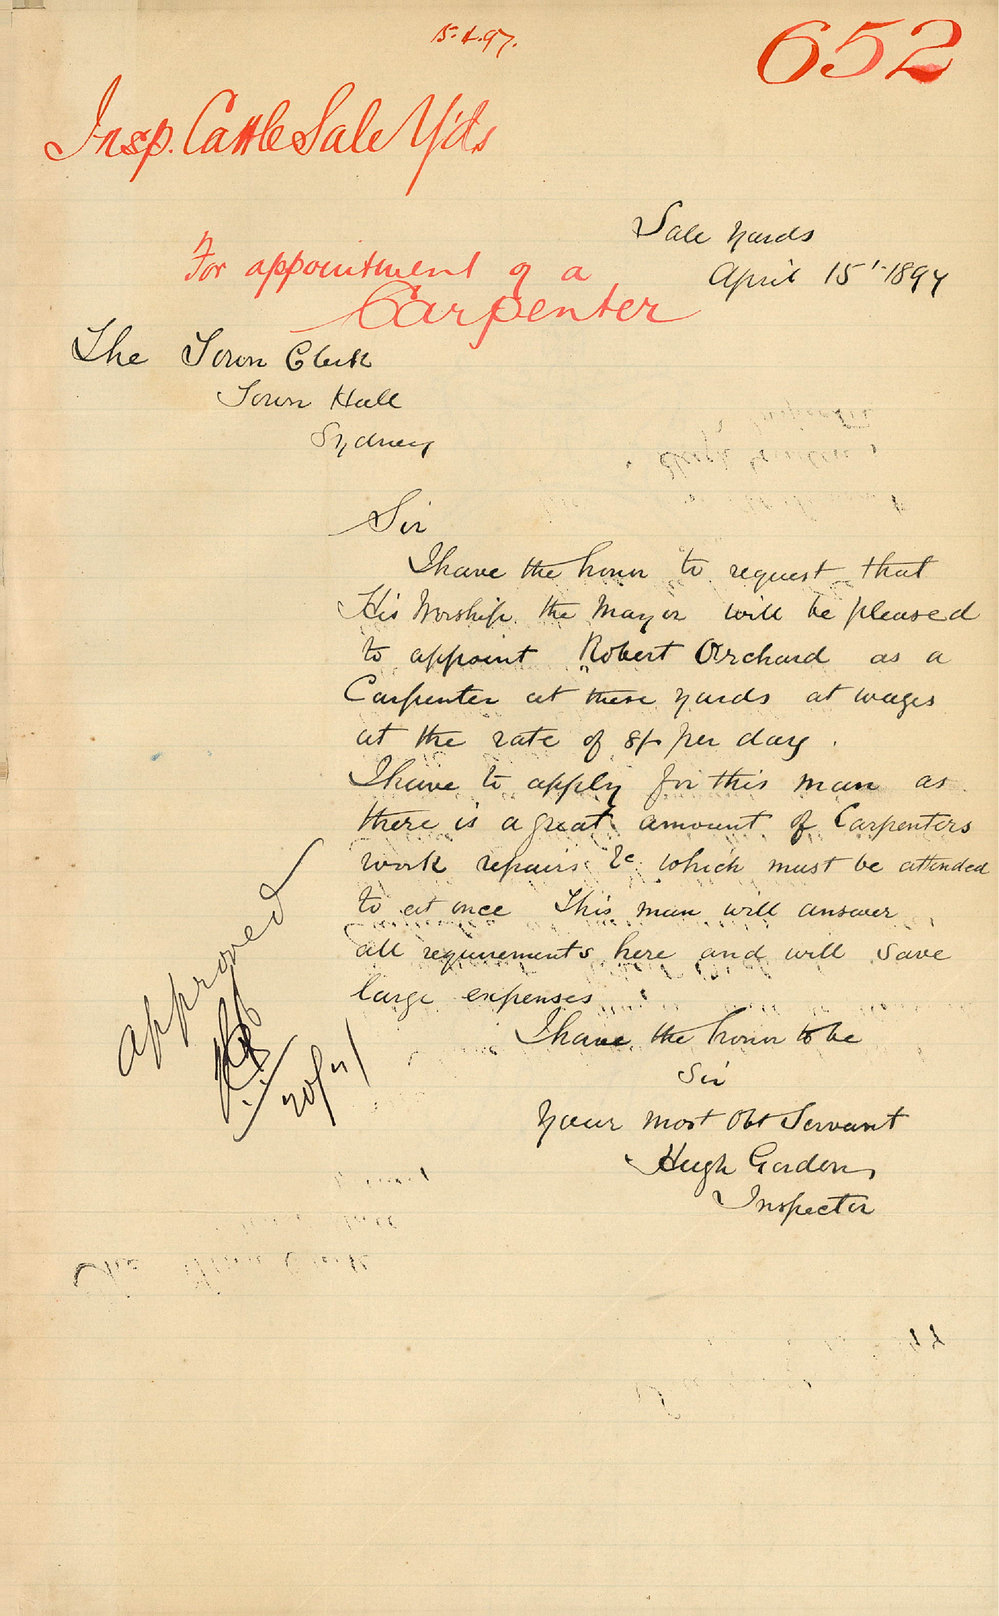 15.4.97.
652
Insp. Cattle Sale Yds
For appointment of a
Carpenter
Sale Yards
April 15th 1897
The Town Clerk
Town Hall
Sydney
Sir
I have the honor to request that
His Worship the Mayor will be pleased
to appoint Robert Orchard as a
Carpenter at these yards at wages
at the rate of 8/- per day.
I have to apply for this man as
there is a great amount of Carpenters
work repairs &c which must be attended
to at once This man will answer
all requirements here and will save
large expenses
I have the honor to be
Sir
Your most Obt Servant
Hugh Gordon
Inspector
approved